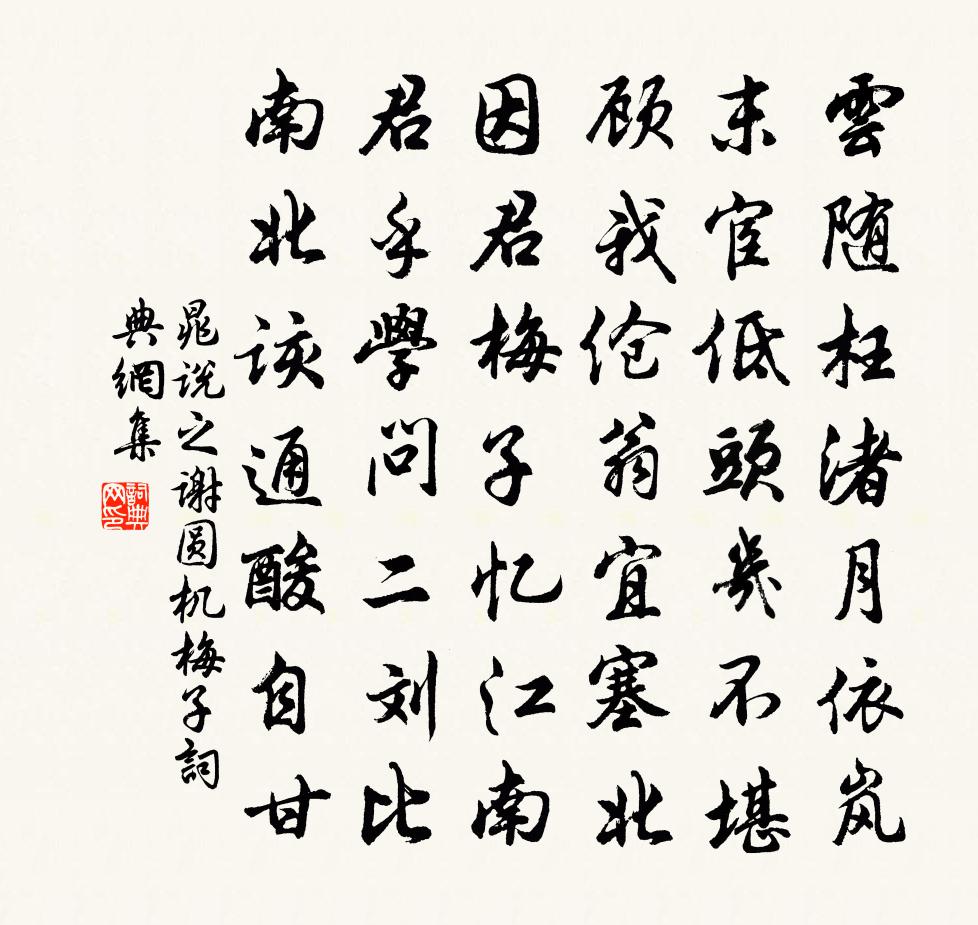 雲随枉渚月依岚
末宦低頭幾不堪
顾我伧翁宜塞北
因君梅子忆江南
君乎學問二刘比
南北該通酸自甘
晁说之谢圆机梅子詞
典網集
詞典
网印